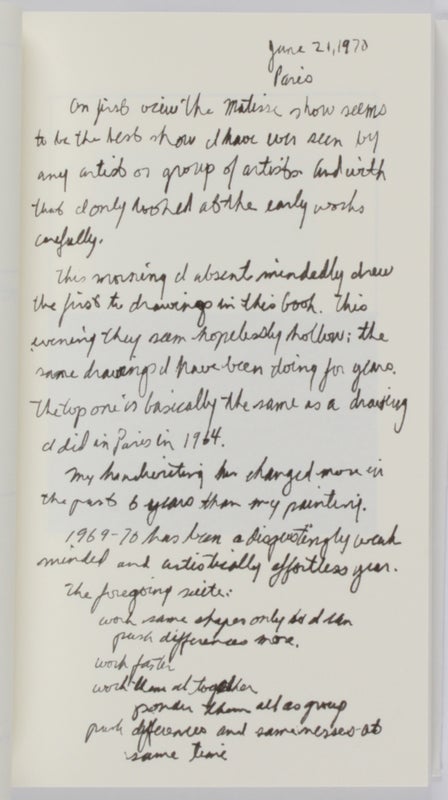 June 21, 1970
Paris
On first view the Matisse show seems
to be the best show I have ever seen by
any artist or group of artists. And with
that I only looked at the early works
carefully.
This morning I absent mindedly drew
the first to drawings in this book. This
evening they seem hopelessly hollow; the
same drawings I have been doing for years.
The top one is basically the same as a drawing
I did in Paris in 1964.
My handwriting has changed more in
the past 6 years than my painting.
1969-70 has been a disgustingly weak
minded and artistically effortless year.
The foregoing suite:
work same shapes only so I can
push differences more.
work faster
work them all together
ponder them all as group
push differences and samenesses at
same time